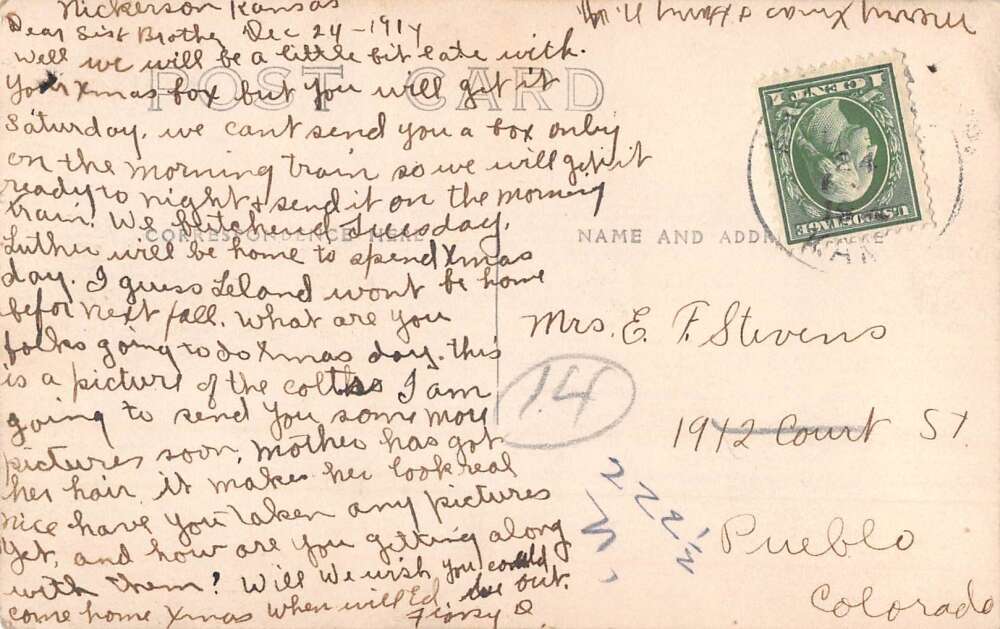 Nickerson Kansas
Dear Sist Brother Dec 24-1914
Well we will be a little bit late with.
Your Xmas box but you will get it
Saturday, we cant send you a box only
on the morning train so we will get it
ready to night & send it on the morning
train. We butchered Tuesday.
Luther will be home to spend Xmas
day. I guess Leland wont be home
befor next fall. What are you
folks going to do Xmas day. this
is a picture of the colts I am
going to send you some mor
pictures soon, mother has got
her hair it makes her look real
nice have you taken any pictures
yet, and how are you getting along
with them? Will We wish you could
come home Xmas when will Ed be out.
Merry Xmas & Happy N.
POST CARD
CORRESPONDENCE HERE
NAME AND ADDRESS HERE
1 CENT 1
U.S. POSTAGE
KAN
Mrs. E. F. Stevens
14
1912 Court St
Pueblo
Colorado